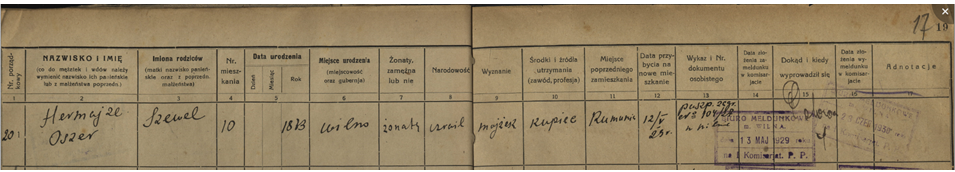 17 19
Nr. porząd-
kowy
NAZWISKO I IMIĘ
(co do mężatek i wdów należy
wymienić nazwisko ich panieńskie
lub z małżeństwa poprzedn.)
Imiona rodziców
(matki nazwisko panień-
skie oraz z poprzedn.
małżeństwa)
Nr.
miesz-
kania
Data urodzenia
Dzień
Miesiąc
Rok
Miejsce urodzenia
(miejscowość
oraz gubernja)
Żonaty,
zamężna
lub nie
Narodowość
Wyznanie
Środki i źródła
utrzymania
(zawód, profesja)
Miejsce
poprzedniego
zamieszkania
Data przy-
bycia na no-
we miesz-
kanie
Wykaz i Nr.
dokumentu
osobistego
Data zło-
żenia za-
meldunku
w komisar-
jacie
Dokąd i kiedy
wyprowadził się
Data zło-
żenia wy-
meldunku
w komisar-
jacie
Adnotacje
1 2 3 4 5 6 7 8 9 10 11 12 13 15
201
Hermajze
Oszer
Szewel
10
1873
Wilno
żonaty
izrael
mojżesz
Kupiec
Rumunia
12/V
29r.
BIURO MELDUNKOWE
m. WILNA
dnia 13 MAJ 1929 roku
na I Komisarjat. P. P.